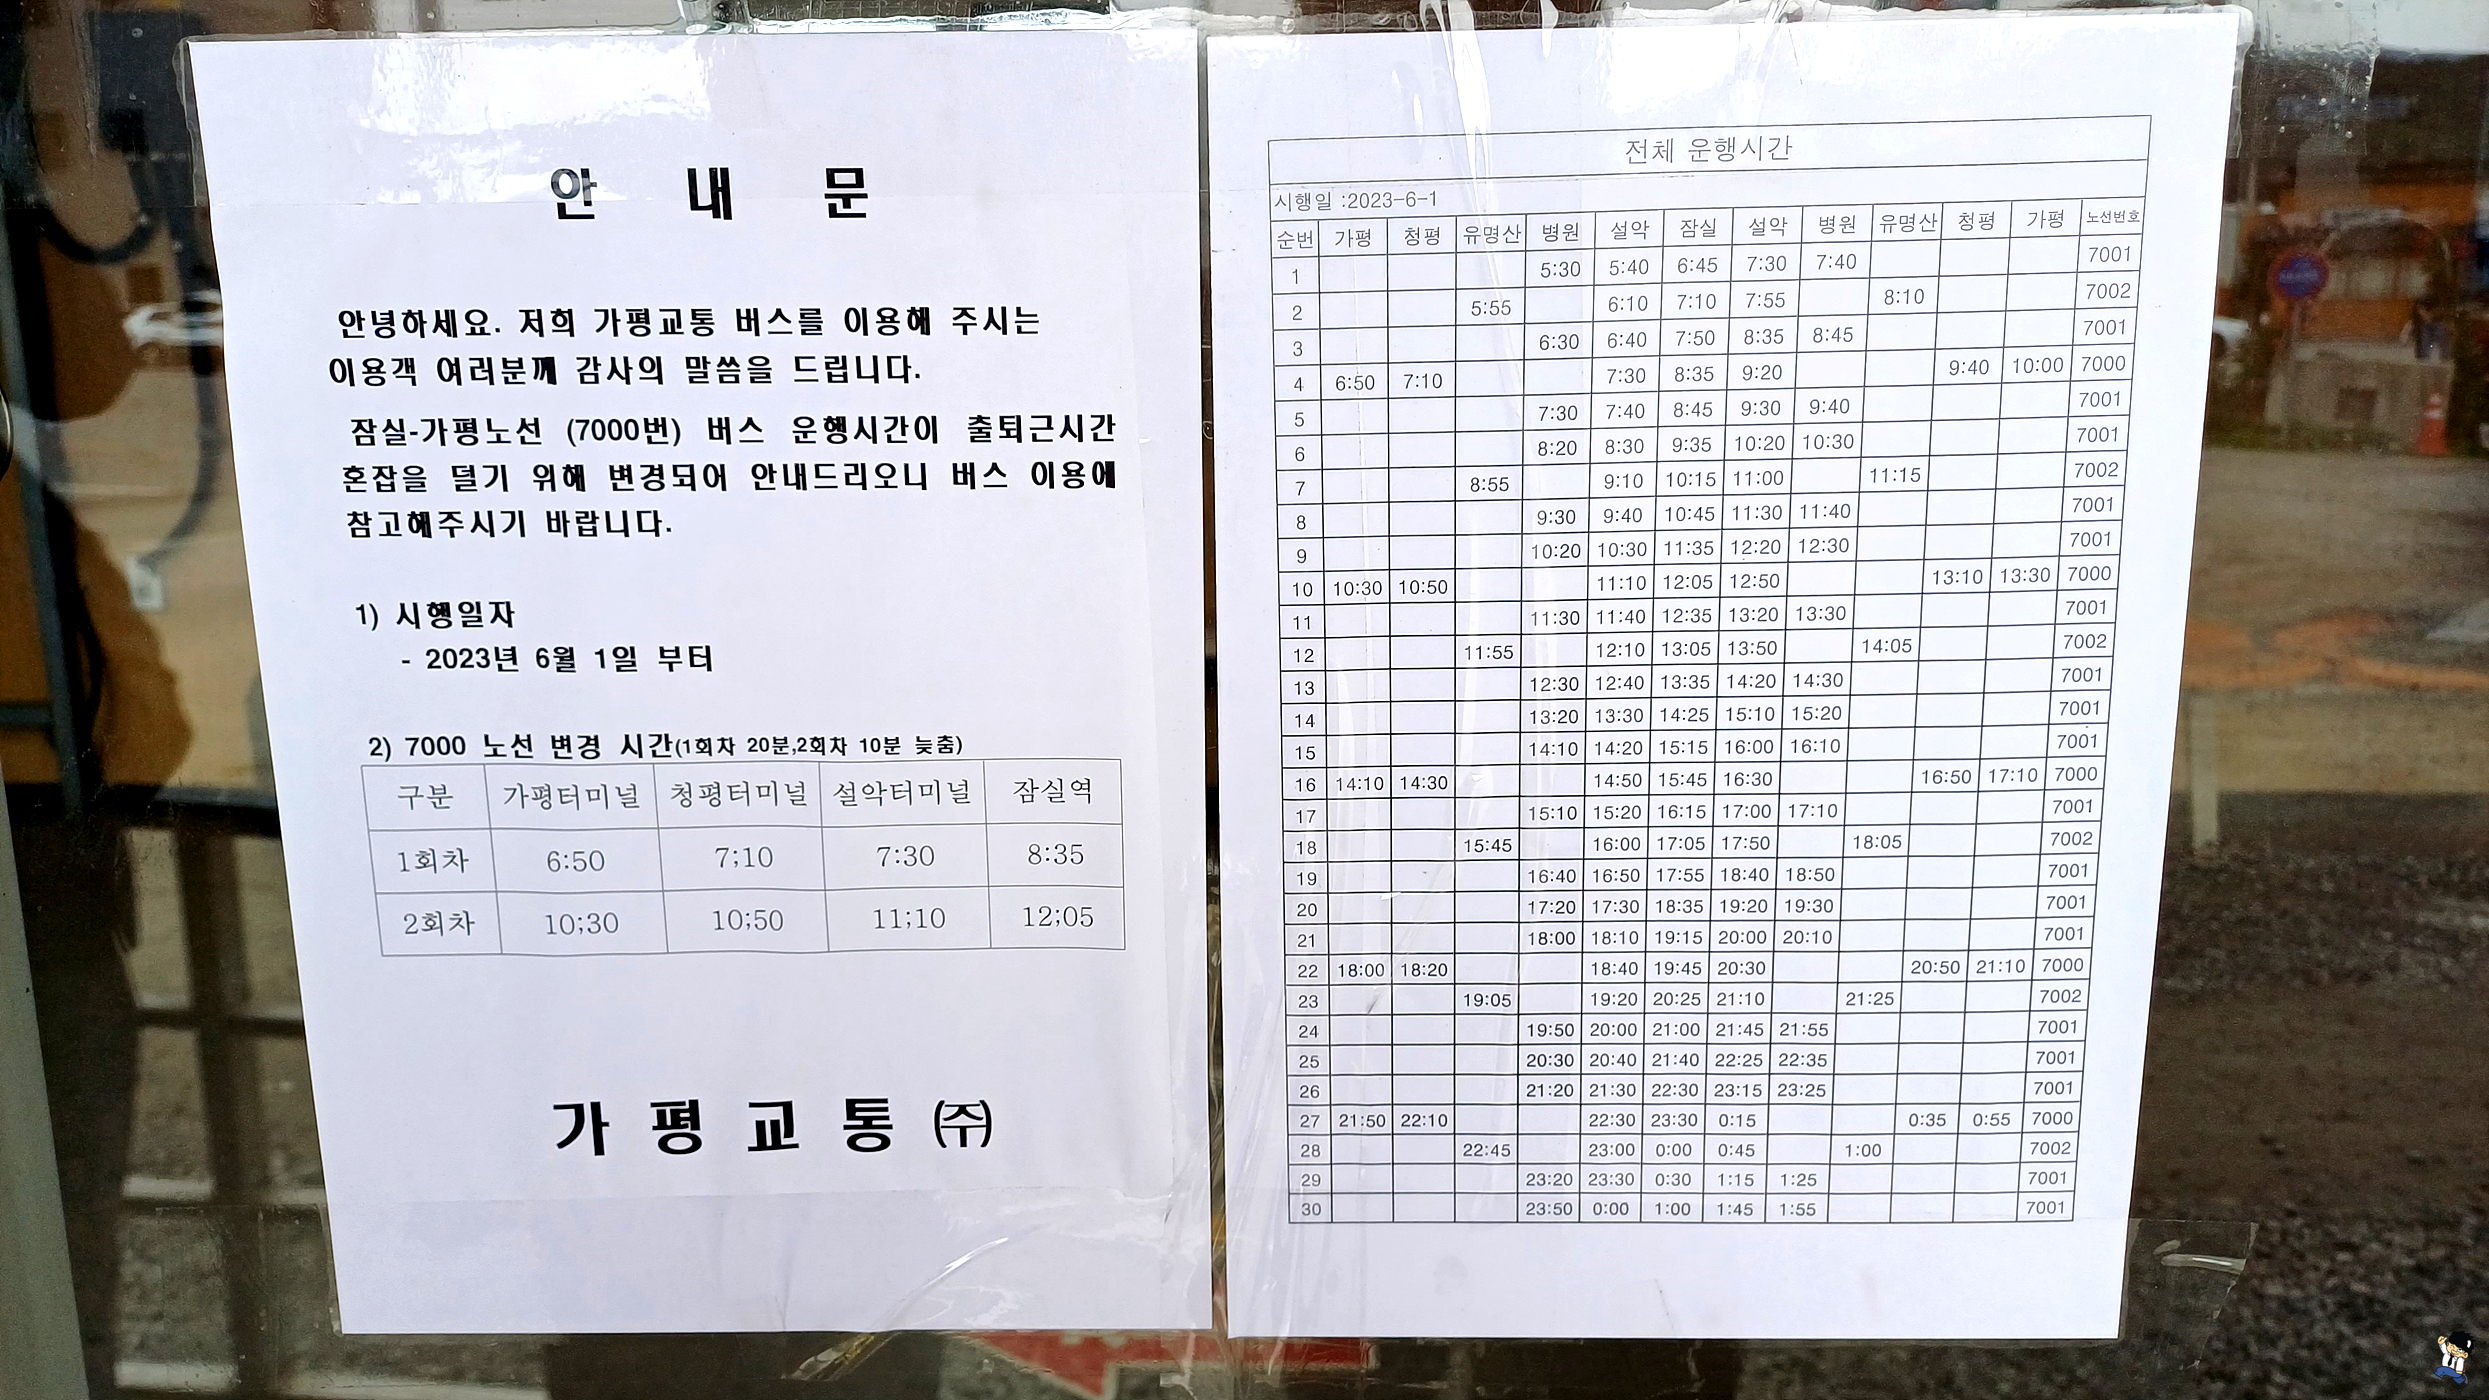 안 내 문
안녕하세요. 저희 가평교통 버스를 이용해 주시는
이용객 여러분께 감사의 말씀을 드립니다.
잠실-가평노선 (7000번) 버스 운행시간이 출퇴근시간
혼잡을 덜기 위해 변경되어 안내드리오니 버스 이용에
참고해주시기 바랍니다.
1) 시행일자
- 2023년 6월 1일 부터
2) 7000 노선 변경 시간(1회차 20분,2회차 10분 늦춤)
구분 가평터미널 청평터미널 설악터미널 잠실역
1회차 6:50 7;10 7:30 8:35
2회차 10;30 10;50 11;10 12;05
가 평 교 통 ㈜
전체 운행시간
시행일 :2023-6-1
순번 가평 청평 유명산 병원 설악 잠실 설악 병원 유명산 청평 가평 노선번호
1 5:30 5:40 6:45 7:30 7:40 7001
2 5:55 6:10 7:10 7:55 8:10 7002
3 6:30 6:40 7:50 8:35 8:45 7001
4 6:50 7:10 7:30 8:35 9:20 9:40 10:00 7000
5 7:30 7:40 8:45 9:30 9:40 7001
6 8:20 8:30 9:35 10:20 10:30 7001
7 8:55 9:10 10:15 11:00 11:15 7002
8 9:30 9:40 10:45 11:30 11:40 7001
9 10:20 10:30 11:35 12:20 12:30 7001
10 10:30 10:50 11:10 12:05 12:50 13:10 13:30 7000
11 11:30 11:40 12:35 13:20 13:30 7001
12 11:55 12:10 13:05 13:50 14:05 7002
13 12:30 12:40 13:35 14:20 14:30 7001
14 13:20 13:30 14:25 15:10 15:20 7001
15 14:10 14:20 15:15 16:00 16:10 7001
16 14:10 14:30 14:50 15:45 16:30 16:50 17:10 7000
17 15:10 15:20 16:15 17:00 17:10 7001
18 15:45 16:00 17:05 17:50 18:05 7002
19 16:40 16:50 17:55 18:40 18:50 7001
20 17:20 17:30 18:35 19:20 19:30 7001
21 18:00 18:10 19:15 20:00 20:10 7001
22 18:00 18:20 18:40 19:45 20:30 20:50 21:10 7000
23 19:05 19:20 20:25 21:10 21:25 7002
24 19:50 20:00 21:00 21:45 21:55 7001
25 20:30 20:40 21:40 22:25 22:35 7001
26 21:20 21:30 22:30 23:15 23:25 7001
27 21:50 22:10 22:30 23:30 0:15 0:35 0:55 7000
28 22:45 23:00 0:00 0:45 1:00 7002
29 23:20 23:30 0:30 1:15 1:25 7001
30 23:50 0:00 1:00 1:45 1:55 7001